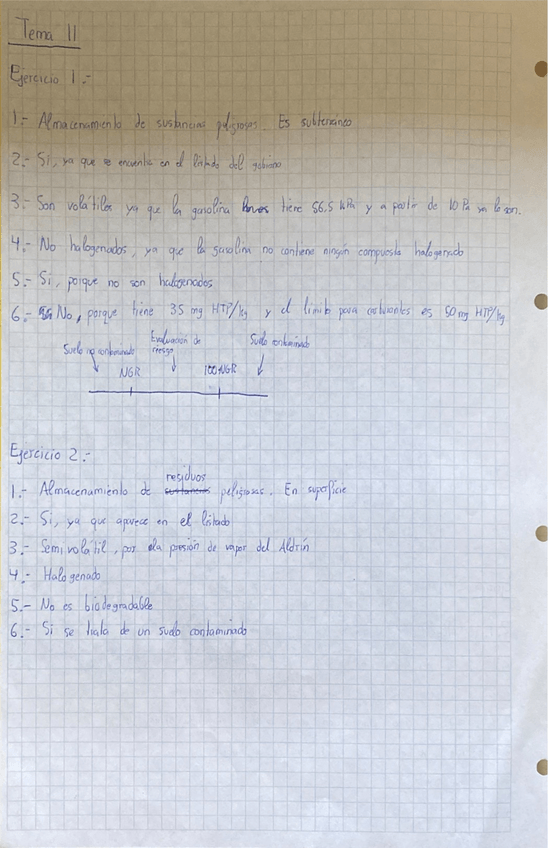 Tema 11
Ejercicio 1.-
1.- Almacenamiento de sustancias peligrosas. Es subterráneo
2.- Si, ya que se encuentra en el listado del gobierno
3.- Son volátiles ya que la gasolina tiene 56.5 kPa y a partir de 10 Pa ya lo son.
4.- No halogenados, ya que la gasolina no contiene ningún compuesto halogenado
5.- Si, porque no son halogenados
6.- No, porque tiene 35 mg HTP/kg y el límite para carburantes es 50 mg HTP/kg
Suelo no contaminado Evaluación de riesgo Suelo contaminado
NGR 100·NGR
Ejercicio 2.-
1.- Almacenamiento de residuos peligrosas. En superficie
2.- Si, ya que aparece en el listado
3.- Semivolátil, por la presión de vapor del Aldrín
4.- Halogenado
5.- No es biodegradable
6.- Si se trata de un suelo contaminado